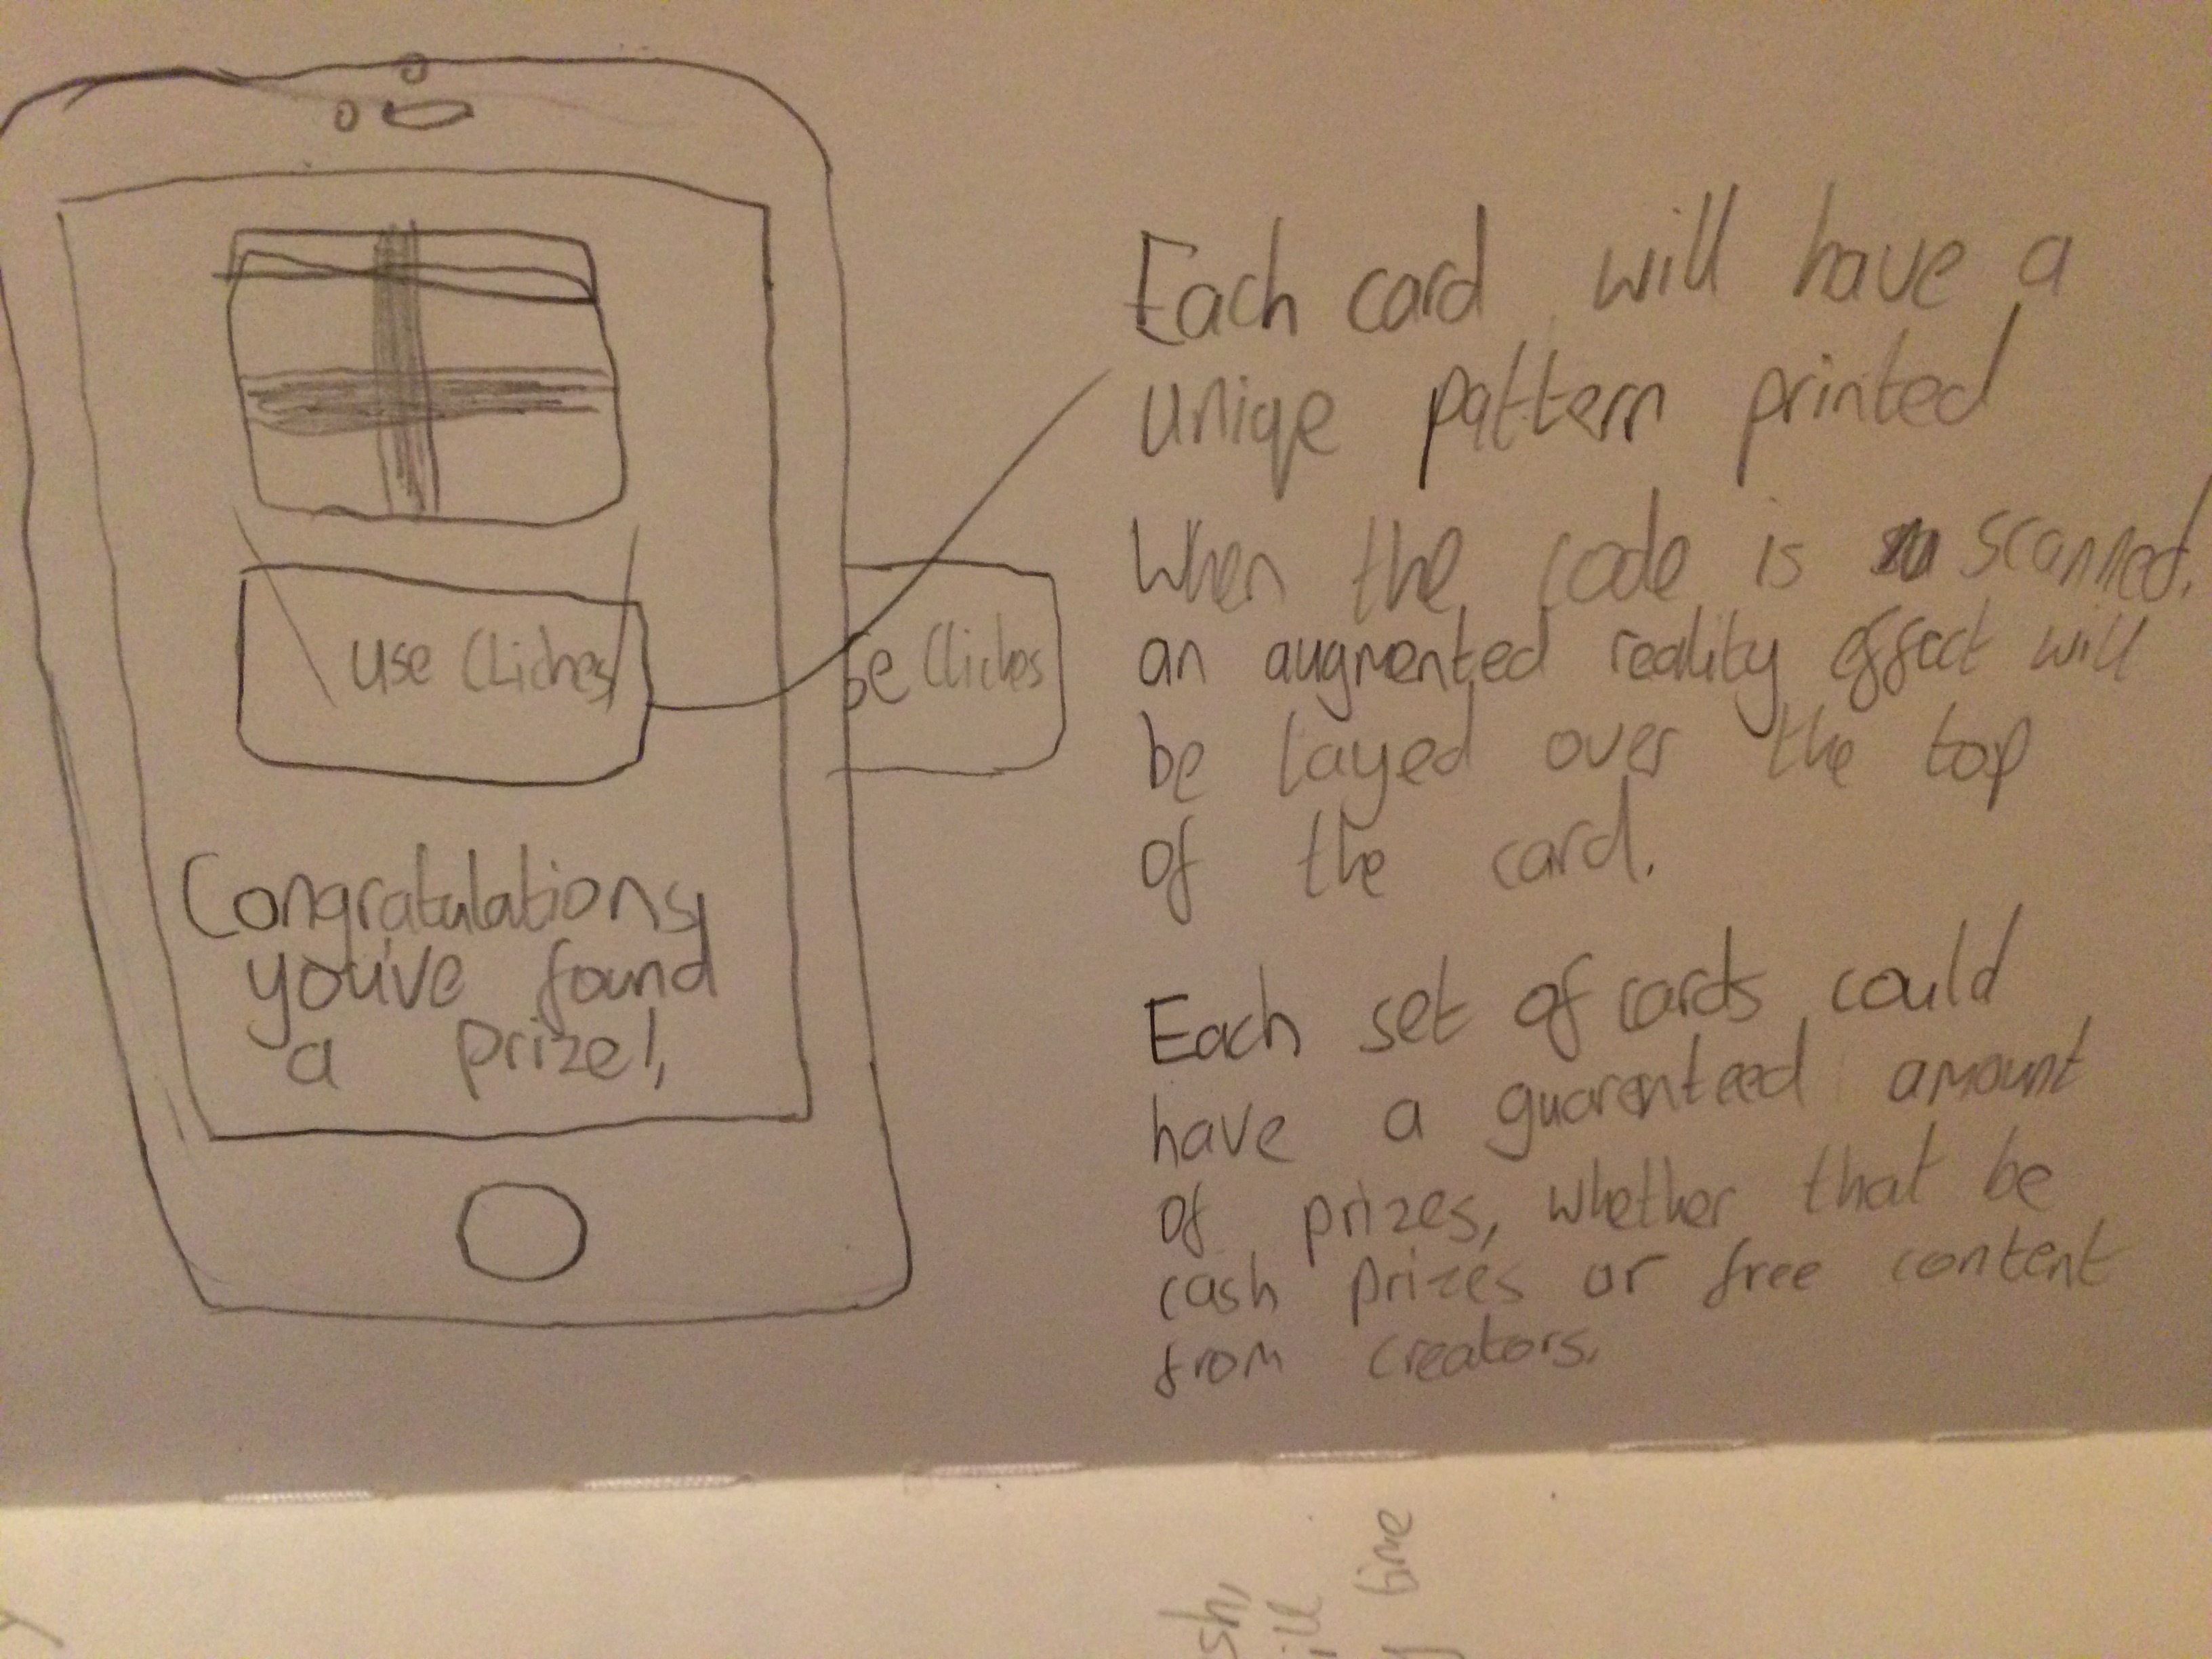 use Cliches
se Cliches
Congratulations,
you've found
a prize!,
Each card will have a
uniqe pattern printed
When the code is scanned,
an augmented reality effect will
be layed over the top
of the card.
Each set of cards could
have a guarenteed amount
of prizes, whether that be
cash prizes or free content
from creators.
sh,
ill
time